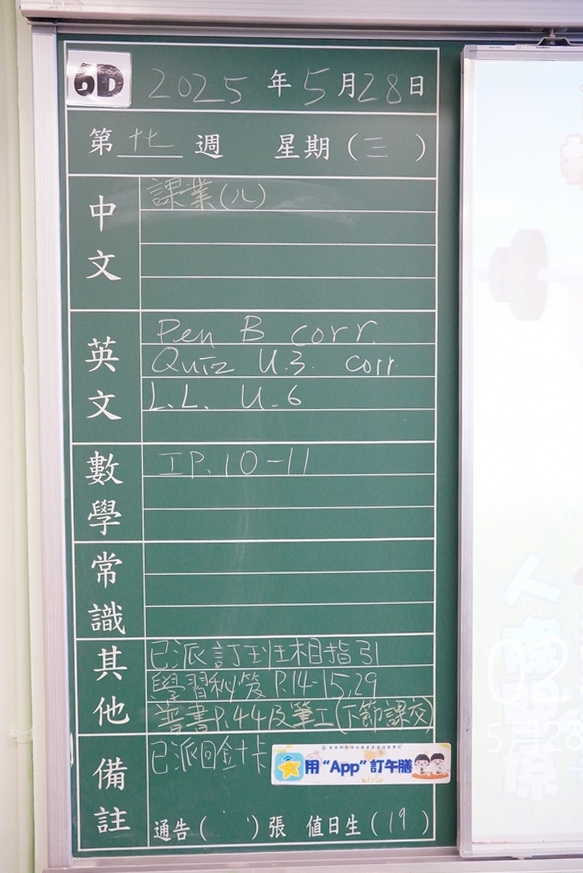 6D 2025年5月28日
第 廿七 週 星期(三)
中文
課業(八)
英文
Pen B corr.
Quiz U.3. corr
L.L. U.6
數學
IP.10-11
常識
其他
已派訂班相指引
學習秘笈 P.14-15,29
普書P.44及筆工(下節課交)
備註
已派回會十卡
用“App”訂午膳
通告( )張 值日生(19)
5月28